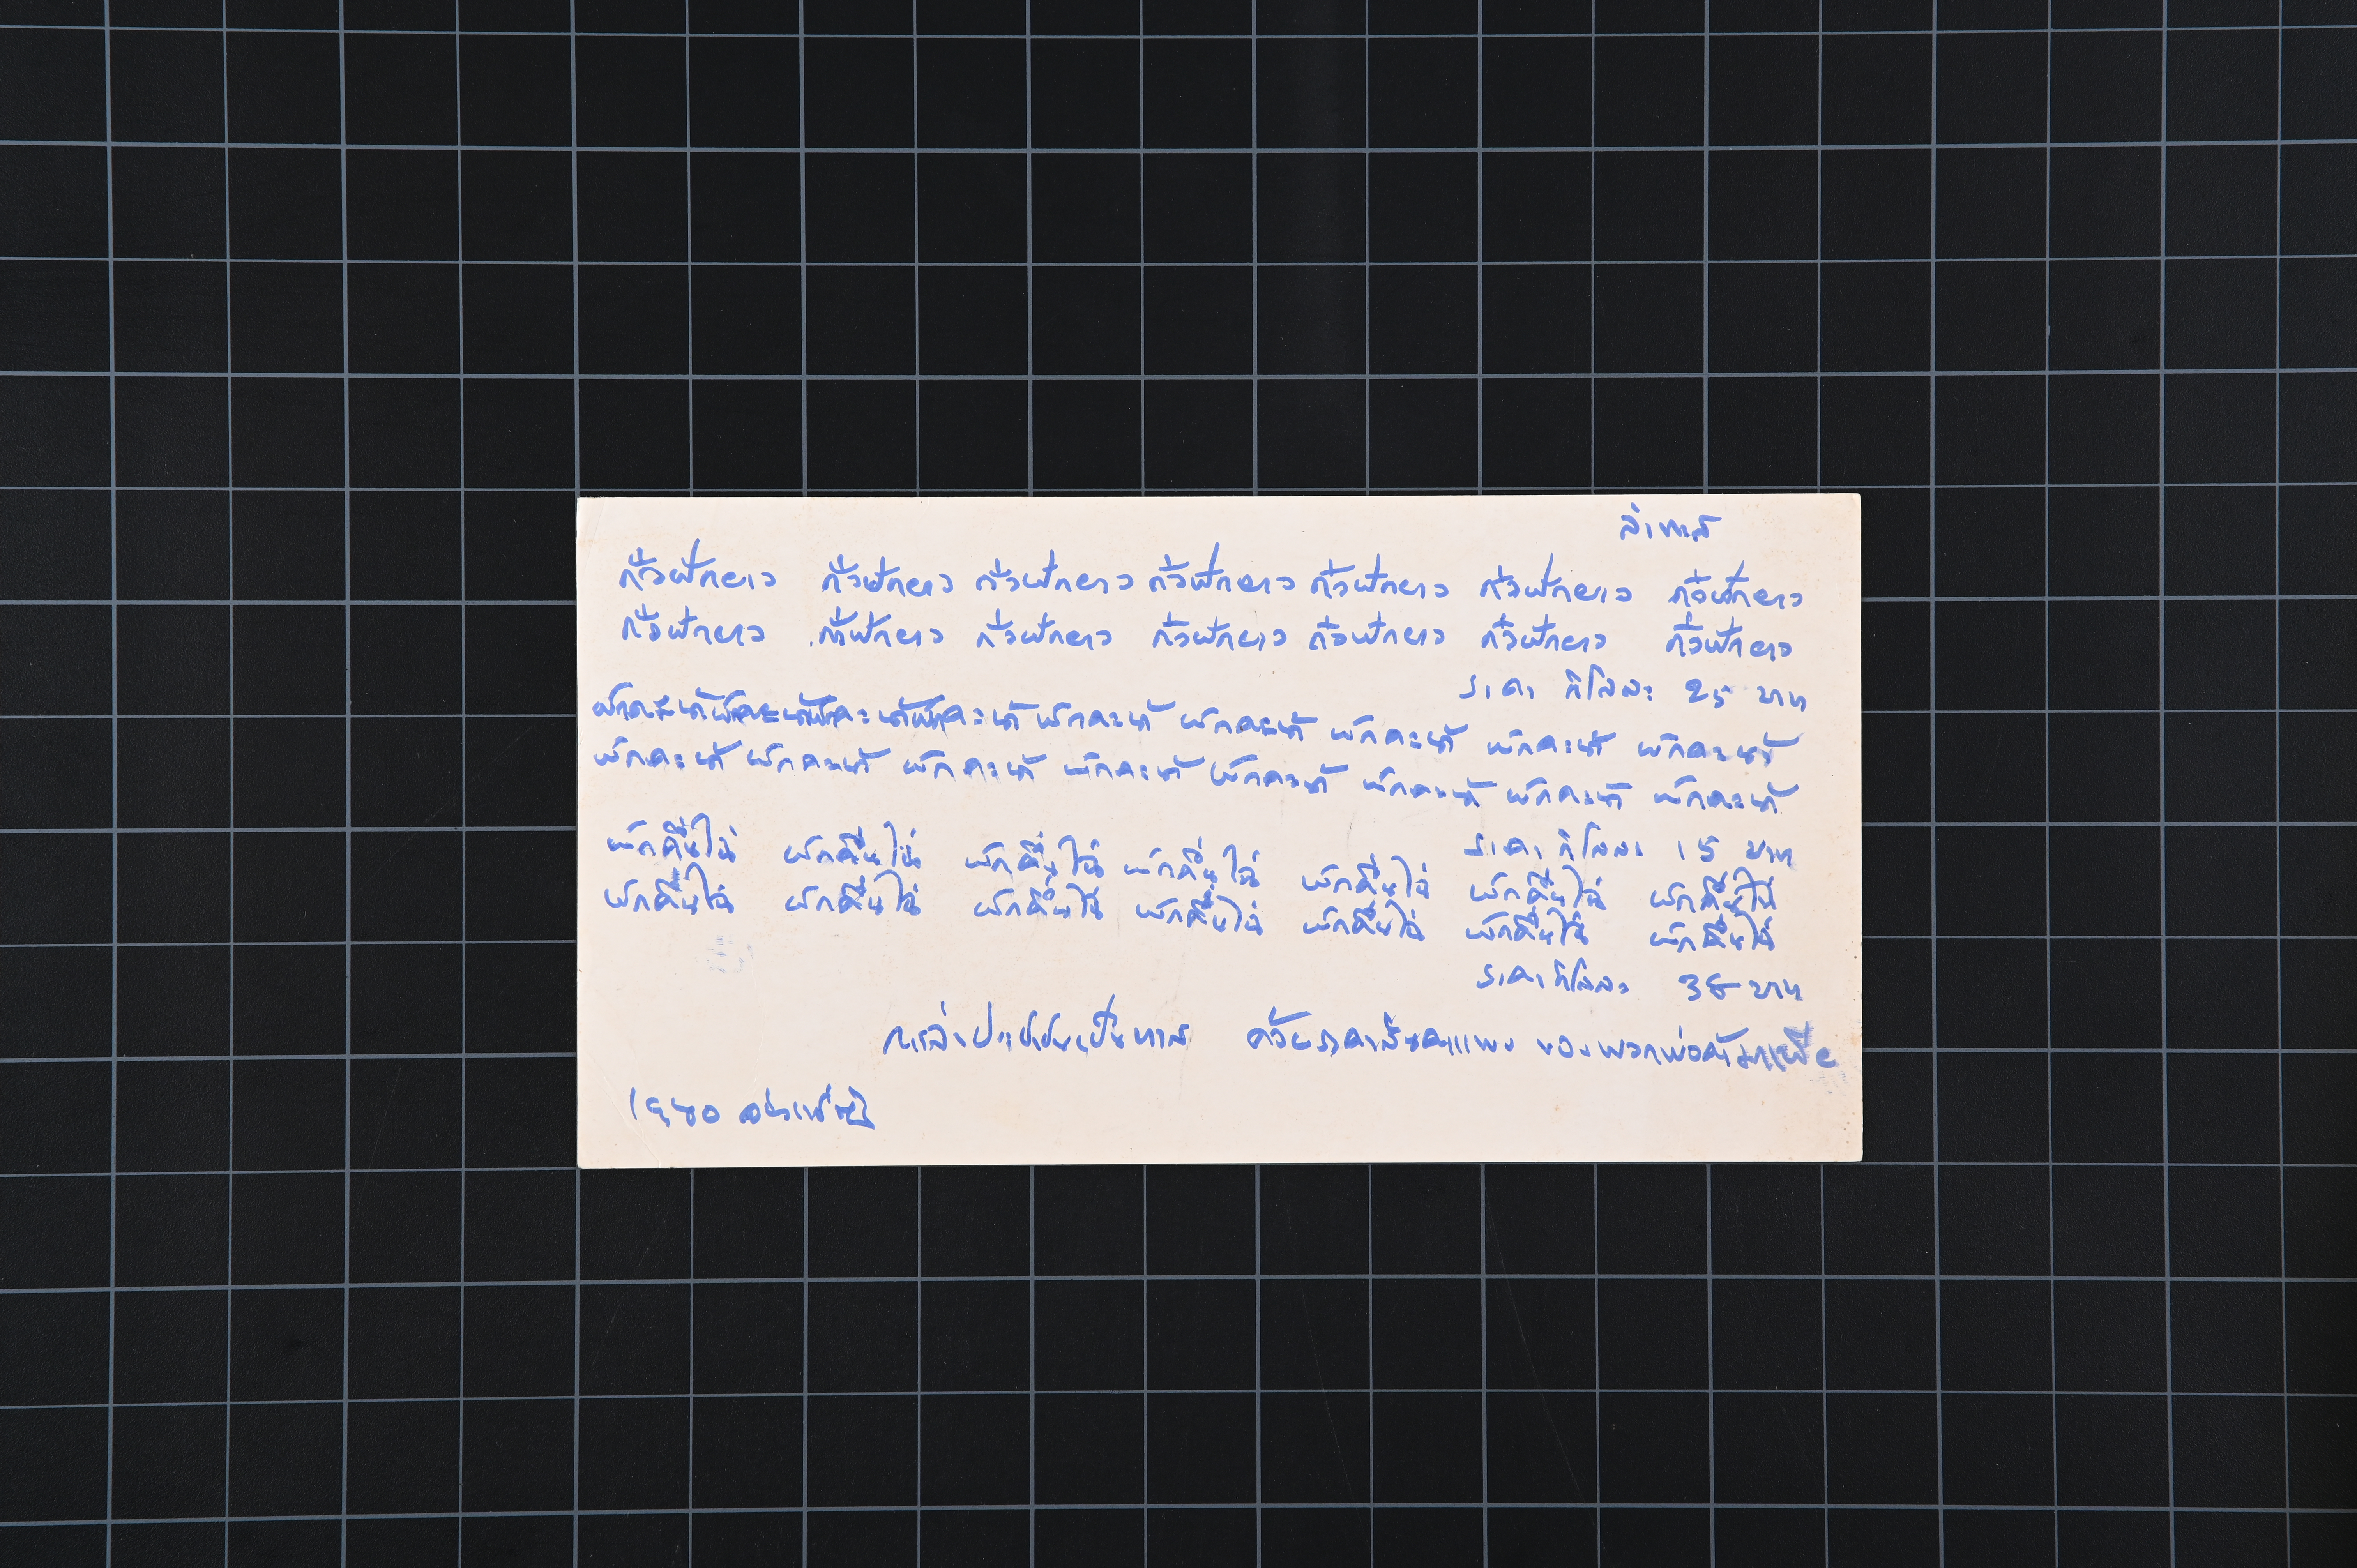 ล่าทาส
ถั่วฝักยาว ถั่วฝักยาว ถั่วฝักยาว ถั่วฝักยาว ถั่วฝักยาว ถั่วฝักยาว ถั่วฝักยาว
ถั่วฝักยาว ถั่วฝักยาว ถั่วฝักยาว ถั่วฝักยาว ถั่วฝักยาว ถั่วฝักยาว ถั่วฝักยาว
ราคา กิโลละ 25 บาท
ผักคะน้าผักคะน้าผักคะน้าผักคะน้า ผักคะน้า ผักคะน้า ผักคะน้า ผักคะน้า ผักคะน้า
ผักคะน้า ผักคะน้า ผักคะน้า ผักคะน้า ผักคะน้า ผักคะน้า ผักคะน้า ผักคะน้า
ราคา กิโลละ 15 บาท
ผักคื่นไฉ่ ผักคื่นไฉ่ ผักคื่นไฉ่ ผักคื่นไฉ่ ผักคื่นไฉ่ ผักคื่นไฉ่ ผักคื่นไฉ่
ผักคื่นไฉ่ ผักคื่นไฉ่ ผักคื่นไฉ่ ผักคื่นไฉ่ ผักคื่นไฉ่ ผักคื่นไฉ่ ผักคื่นไฉ่
ราคา กิโลละ 38 บาท
การล่าประชาชนเป็นทาส ด้วยราคาสินค้าแพง ของพวกพ่อค้า